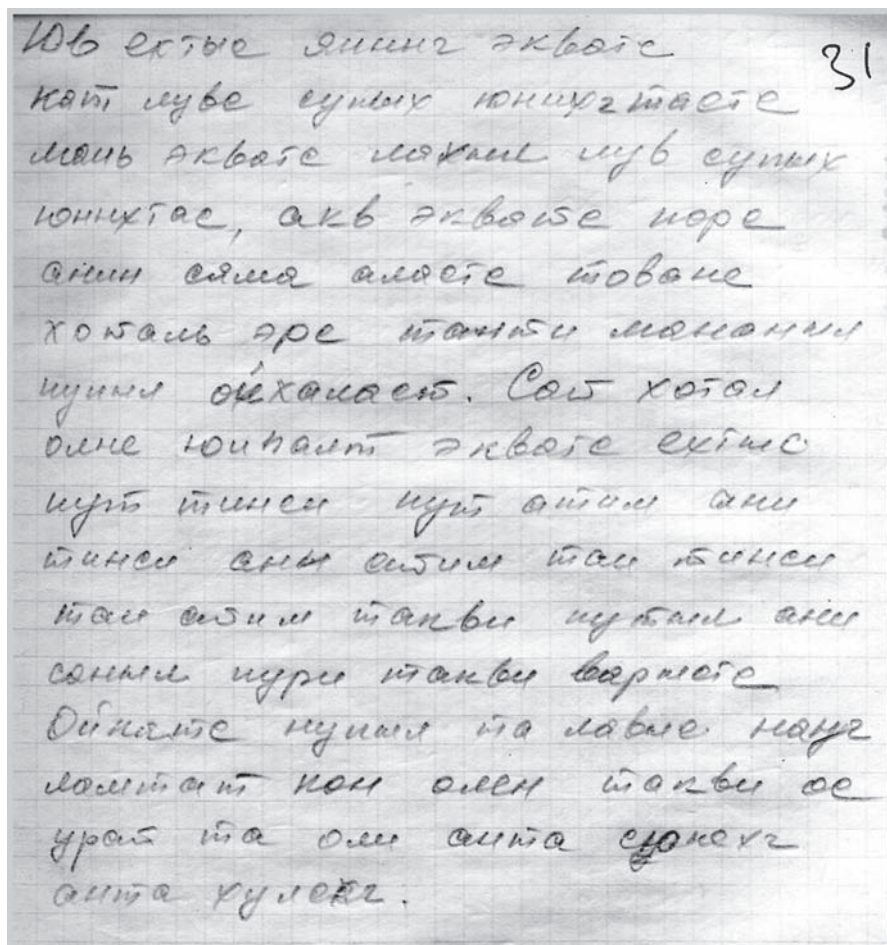 Юв ехтые яныг эквате
31
кат луве супых юнихгтаете
мань эквате ляхыл лув супых
юнихтас, акв эквате поре
анин сяма аласте товане
хоталь эре танти мананыл
нупыл ойхаласт. Сат хотал
олне юипалт эквате ехтыс
пут тинси пут атим ани
тинси аны атим таи тинси
таи атим такви путыл ани
саныл пури такви вармате
Ойкате нупыл та лавые нанг
ламтат кон олен такви ос
урат та оли анта сюнехг
анта хулехг.